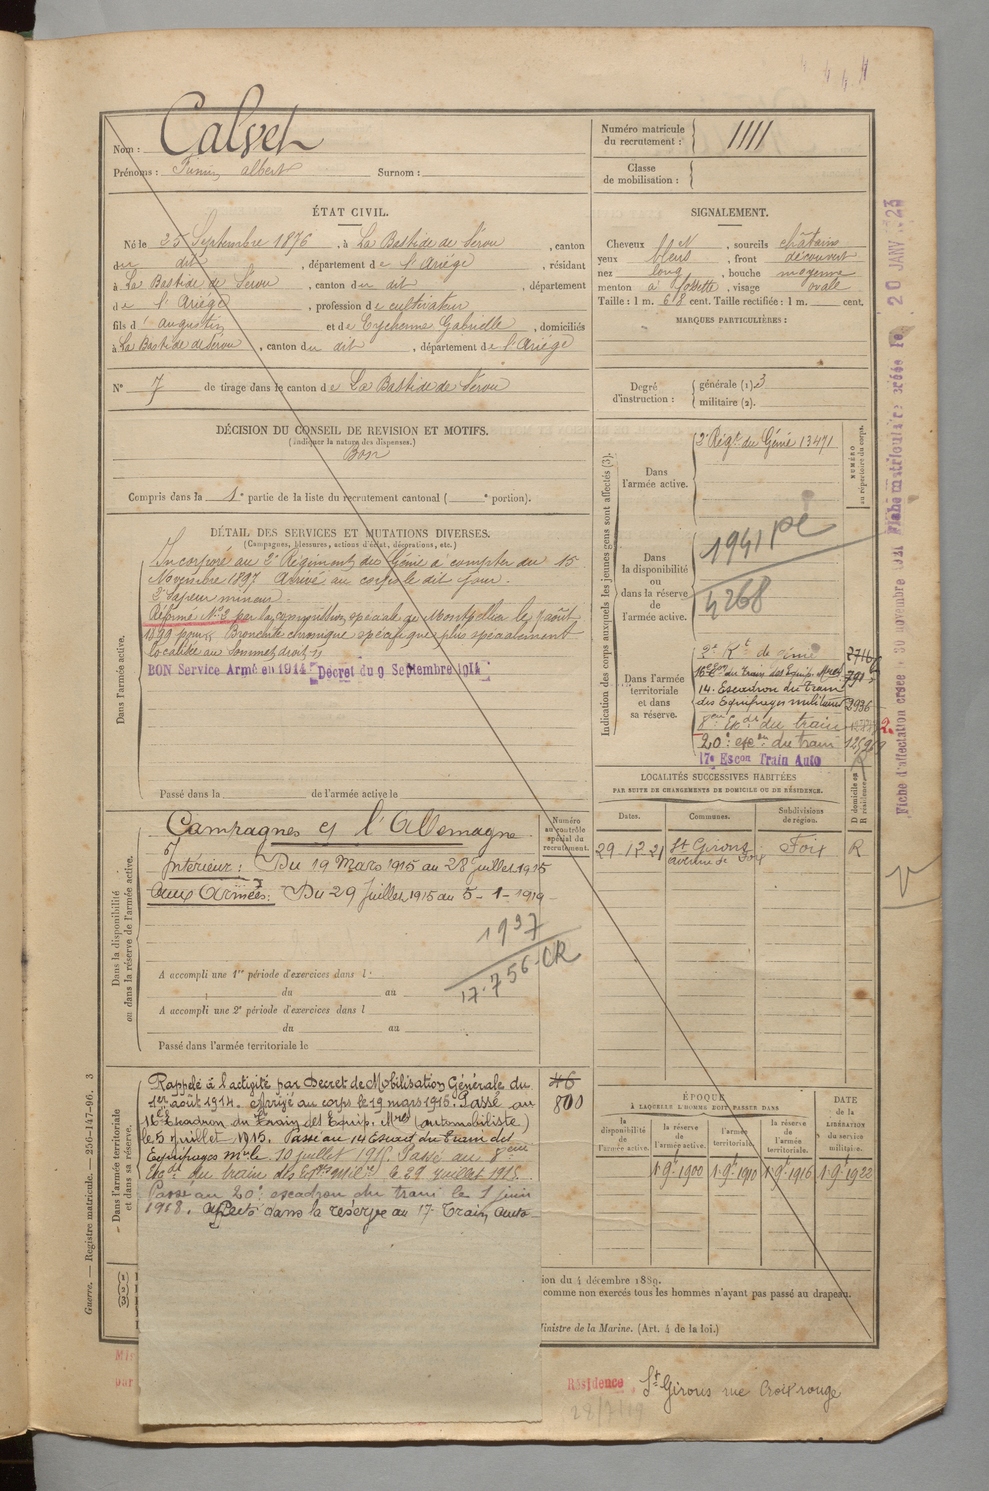 Nom : Calvet
Prénoms : Firmin albert Surnom :
Numéro matricule du recrutement : 1111
Classe de mobilisation :
ÉTAT CIVIL.
Né le 25 Septembre 1876, à La Bastide de Sérou, canton
du dit, département de l'Ariége, résidant
à La Bastide de Sérou, canton du dit, département
de l'Ariége, profession de cultivateur
fils d'augustin et de Eychenne Gabrielle, domiciliés
à La Bastide de Sérou, canton du dit, département de l'Ariége
N° 7 de tirage dans le canton de La Bastide de Sérou
SIGNALEMENT.
Cheveux , sourcils châtains
yeux bleus, front découvert
nez long, bouche moyenne
menton à fossette, visage ovale
Taille : 1 m. 68 cent. Taille rectifiée : 1 m. cent.
MARQUES PARTICULIÈRES :
Degré d'instruction : générale (1). 3
militaire (2).
DÉCISION DU CONSEIL DE REVISION ET MOTIFS.
(Indiquer la nature des dispenses.)
Bon
Compris dans la 1e partie de la liste du recrutement cantonal ( e portion).
DÉTAIL DES SERVICES ET MUTATIONS DIVERSES.
(Campagnes, blessures, actions d'éclat, décorations, etc.)
Dans l'armée active.
Incorporé au 2e Régiment du Génie à compter du 15
Novembre 1897 Arrivé au corps le dit jour.
2e Sapeur mineur.
Réformé N° 2 par la commission spéciale de Montpellier le 7 août
1899 pour Bronchite chronique spécifique plus spécialement
localisée au sommet droit
BON Service Armé en 1914 Décret du 9 Septembre 1914
Passé dans la de l'armée active le
Indication des corps auxquels les jeunes gens sont affectés (3).
NUMÉRO au répertoire du corps.
Dans l'armée active.
2e Régt du Génie 13471
Dans la disponibilité ou dans la réserve de l'armée active.
1941 pé
4268
Dans l'armée territoriale et dans sa réserve.
2e Rt de Génie
16e Eson du Train des Equip. Mres
14. Escadron du Train
des Equipages militaires 2936
8eme Exdr du train
20e escon du train
17e Escon Train Auto
LOCALITÉS SUCCESSIVES HABITÉES
PAR SUITE DE CHANGEMENTS DE DOMICILE OU DE RÉSIDENCE.
Dates. Communes. Subdivisions de région. D domicile ou R résidence.
29-12-21 St Girons avenue de Foix Foix R
Dans la disponibilité ou dans la réserve de l'armée active.
Numéro au contrôle spécial du recrutement.
Campagnes c/ l'Allemagne
Intérieur : Du 19 Mars 1915 au 28 juillet 1915
Aux Armées : Du 29 juillet 1915 au 5-1-1919
1937
17.756-CR
A accompli une 1re période d'exercices dans l
du au
A accompli une 2e période d'exercices dans l
du au
Passé dans l'armée territoriale le
Dans l'armée territoriale et dans sa réserve.
Rappelé à l'activité par Decret de Mobilisation Générale du
1er août 1914. Arrivé au corps le 19 mars 1915. Passé au
16e Escadron du Train des Equip. Mres (automobiliste)
le 5 juillet 1915. Passé au 14 Escad du Train des
Equipages Mres le 10 juillet 1915. Passé au 8eme
Escdr du train des Eqtes milres le 29 juillet 1915.
Passé au 20e escadron du Train le 1 juin
1918. affecté dans la réserve au 17e Train auto
46
800
ÉPOQUE
À LAQUELLE L'HOMME DOIT PASSER DANS
la disponibilité de l'armée active. la réserve de l'armée active. l'armée territoriale. la réserve de l'armée territoriale.
DATE de la LIBÉRATION du service militaire.
1 9e 1900 1 9e 1910 1 9e 1916 1 9e 1922
(1)
(2)
(3)
ion du 4 décembre 1889.
comme non exercés tous les hommes n'ayant pas passé au drapeau.
Ministre de la Marine. (Art. 4 de la loi.)
Résidence St Girons rue Croix rouge
28/7/19
Guerre. — Registre matricule. — 256-147-96. 3
Fiche matriculaire créée le 20 JANV 1923
Fiche d'affectation créée le 30 novembre